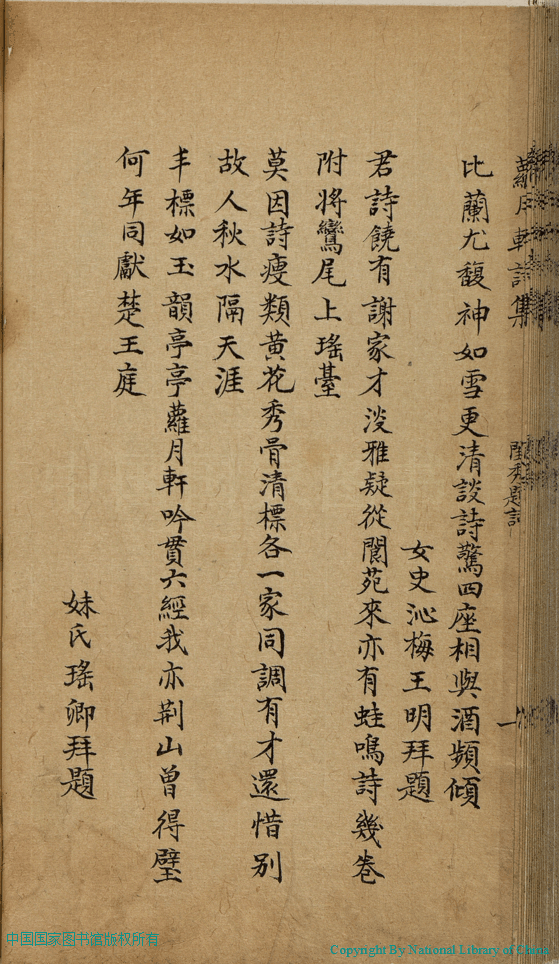 蘿月軒詩集
閨秀題詞
一
比蘭尤馥神如雪更清談詩驚四座相與酒頻傾
女史沁梅王明拜題
君詩饒有謝家才淡雅疑從閬苑來亦有蛙鳴詩幾卷
附將鸞尾上瑤臺
莫因詩瘦類黃花秀骨清標各一家同調有才還惜別
故人秋水隔天涯
丰標如玉韻亭亭蘿月軒吟貫六經我亦荆山曾得璧
何年同獻楚王庭
妹氏瑤卿拜題
中国国家图书馆版权所有
Copyright By National Library of China